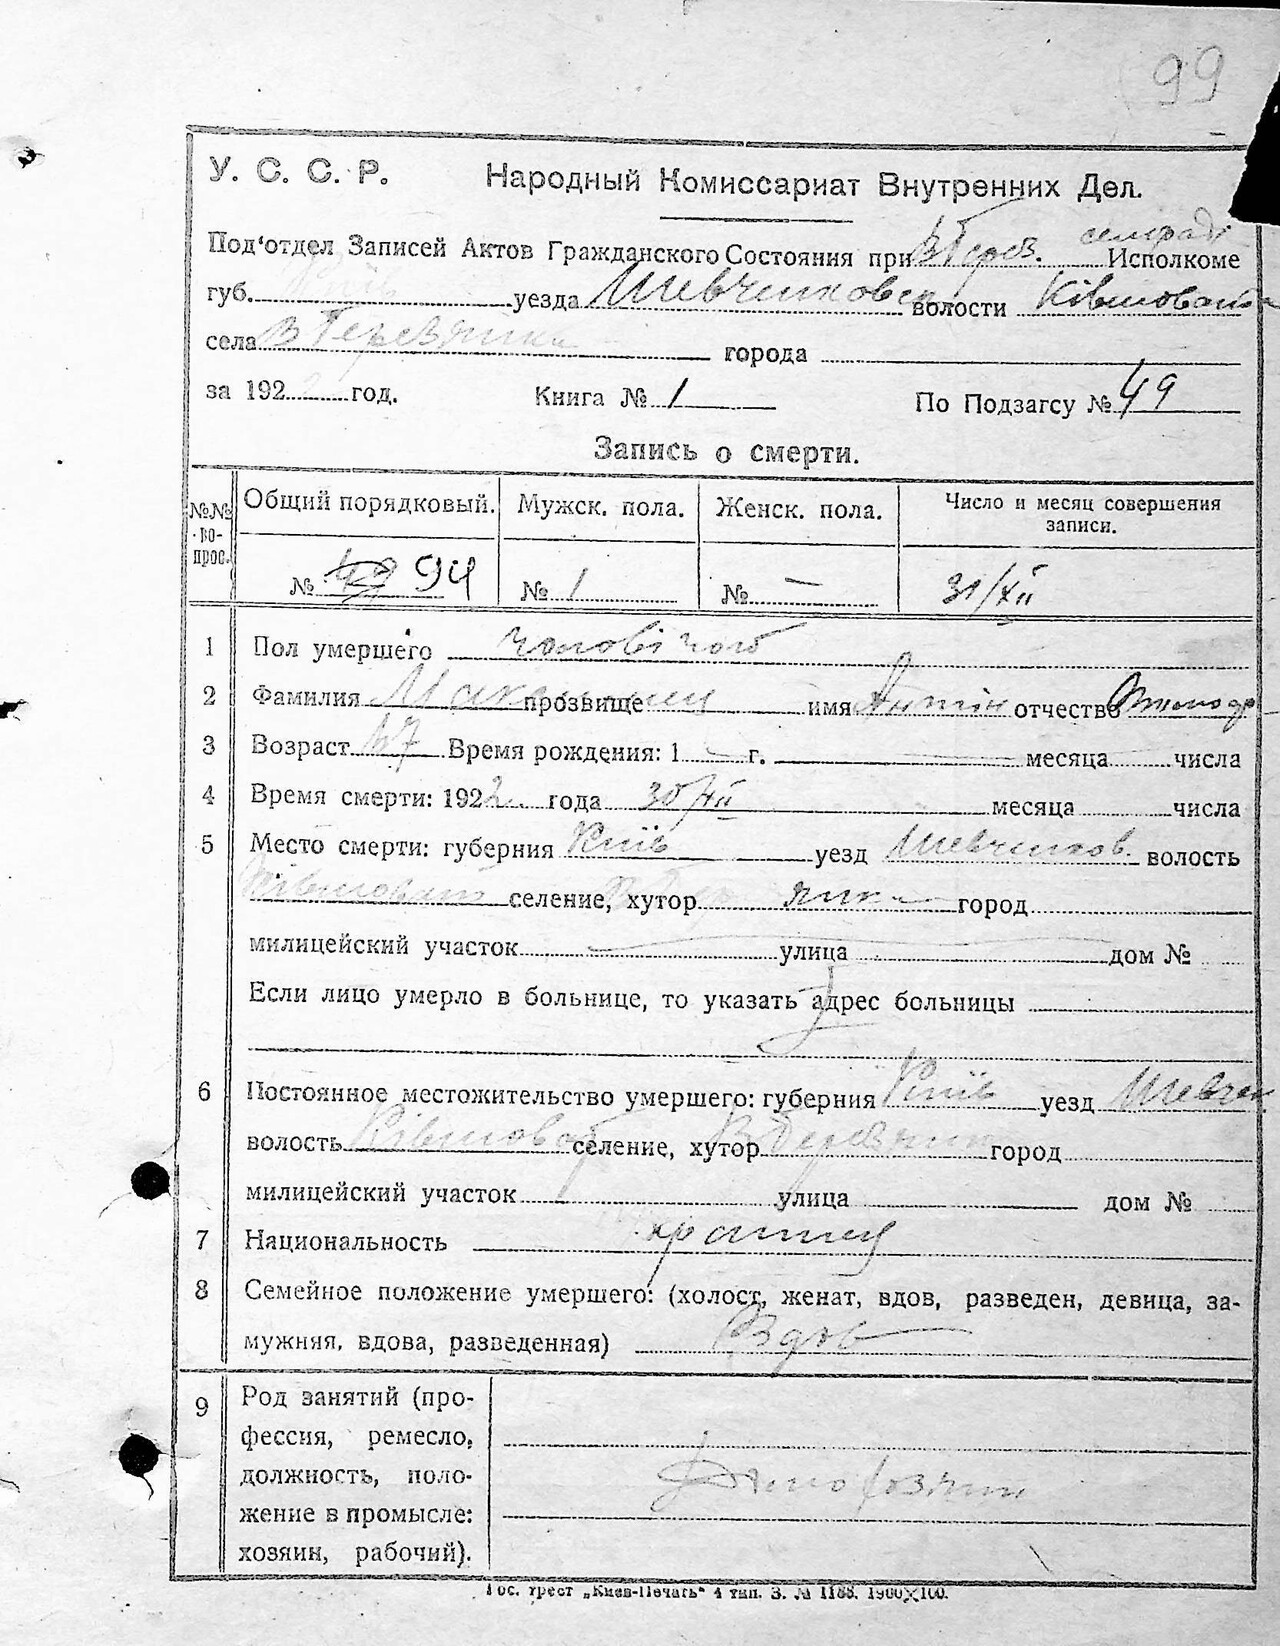 99
У. С. С. Р. Народный Комиссариат Внутренних Дел.
Под'отдел Записей Актов Гражданского Состояния при В Берез. Исполкоме
губ. Київ уезда Шевченковск волости Ківшоват
села В Березянка города
за 1922 год. Книга № 1 По Подзагсу № 49
Запись о смерти.
№№ вопрос. Общий порядковый. Мужск. пола. Женск. пола. Число и месяц совершения записи.
№ 94 № 1 № — 31/XII
1 Пол умершего чоловічого
2 Фамилия прозвище имя Антін отчество
3 Возраст 47 Время рождения: 1 г. месяца числа
4 Время смерти: 1922 года 30/XII месяца числа
5 Место смерти: губерния Київ уезд Шевченков. волость
Ківшоват селение, хутор город
милицейский участок улица дом №
Если лицо умерло в больнице, то указать адрес больницы
6 Постоянное местожительство умершего: губерния Київ уезд Шевчен
волость Ківшоват селение, хутор В Березянка город
милицейский участок улица дом №
7 Национальность
8 Семейное положение умершего: (холост, женат, вдов, разведен, девица, за-
мужняя, вдова, разведенная) Вдов
9 Род занятий (про-
фессия, ремесло,
должность, поло-
жение в промысле:
хозяин, рабочий).
Гос. трест „Киев-Печать“ 4 тип. З. № 1188. 1900×100.